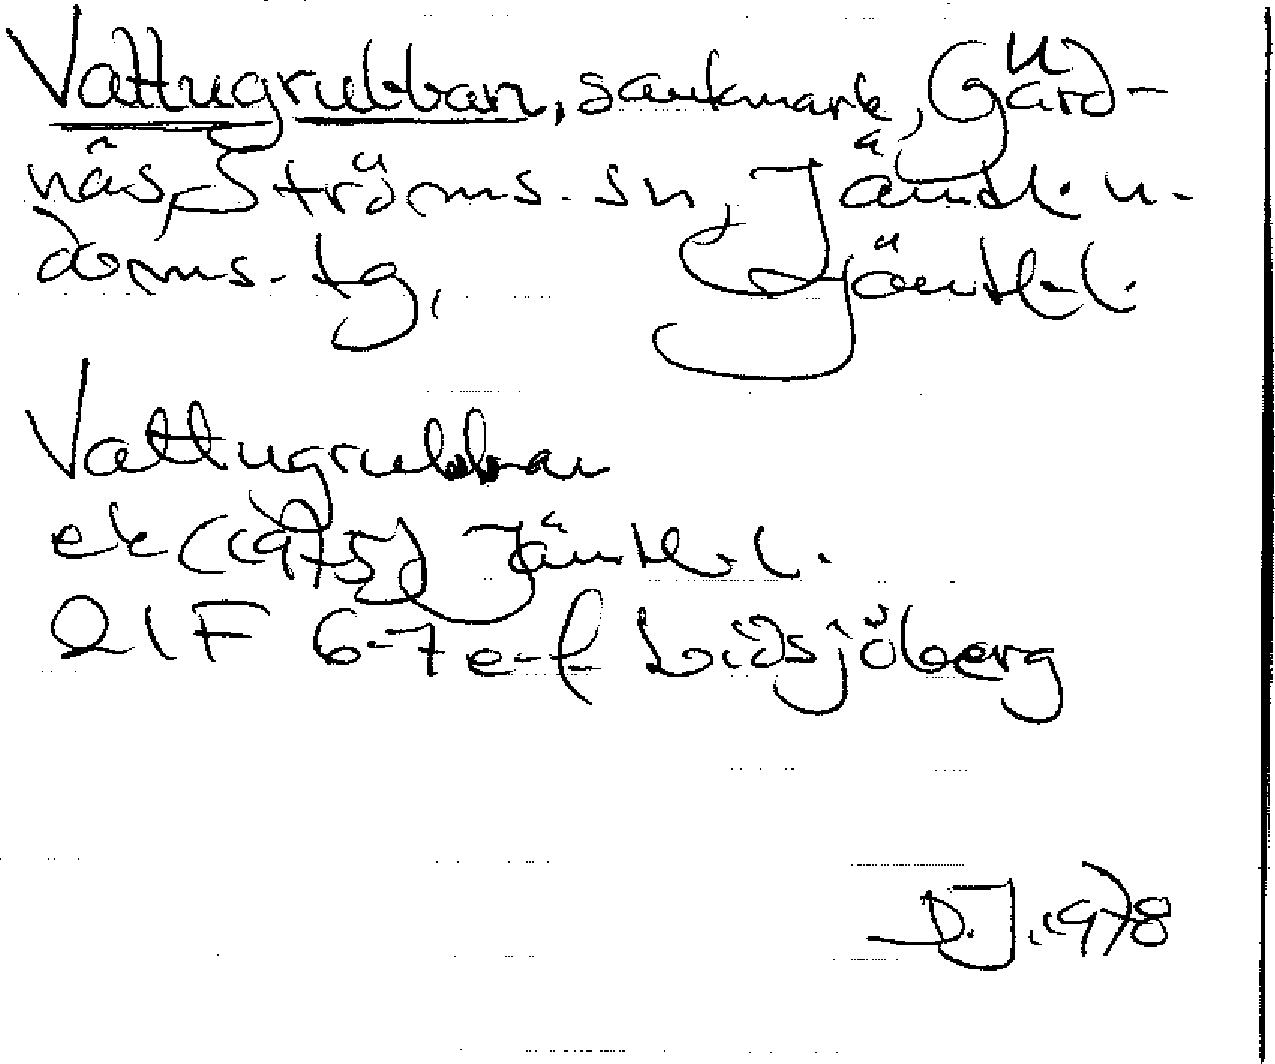 Vattugrubban, sankmark, Gärd-
näs, Ströms sn, Jämtl. n.
doms. tg, Jämtl. l.
Vattugrubban
ek (1975) Jämtl. l.
21F 6-7 e-f Lidsjöberg
D.J. 1978